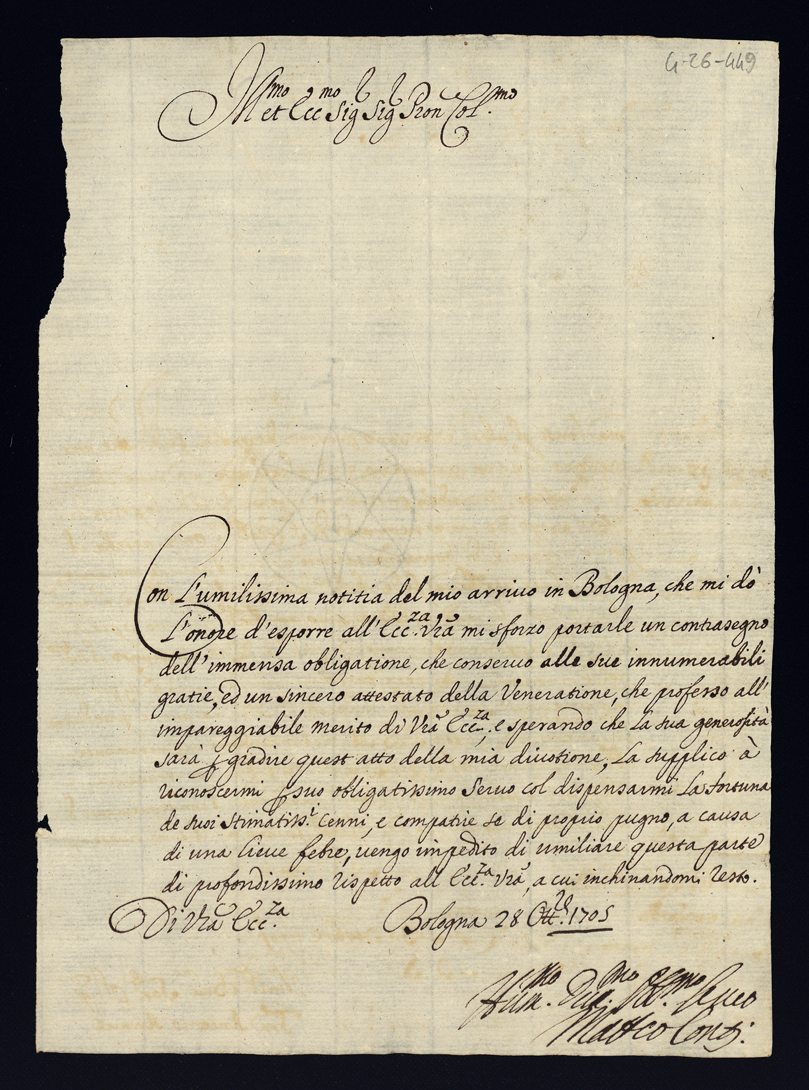 4-26-449
Ill.mo et Ecc.mo Sig Sig Pron Col.mo
Con L'umilissima notitia del mio arriuo in Bologna, che mi dò
L'onore d'esporre all'Ecc.za Vrã mi sforzo portarle un contrasegno
dell'immensa obligatione, che conseruo alle sue innumerabili
gratie, ed un sincero attestato della Veneratione, che professo all'
impareggiabile merito di Vrã Ecc.za, e sperando che La sua generosità
sarà p gradire quest atto della mia diuotione, La supplico à
riconoscermi p suo obligatissimo Seruo col dispensarmi La fortuna
de suoi stimatiss.i cenni, e compatire se di proprio pugno, a causa
di una lieue febre, uengo impedito di umiliare questa parte
di profondissimo rispetto all Ecc.za Vrã, a cui inchinandomi resto.
Di Vrã Ecc.za Bologna 28 Ott.re 1705
Hum.mo Diu.mo Obb.mo Seruo
Matteo Conti